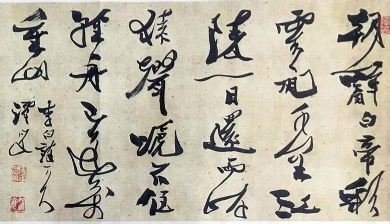 朝辭白帝彩
雲間千里江
陵一日還兩岸
猿聲啼不住
輕舟已過萬
重山
李白詩